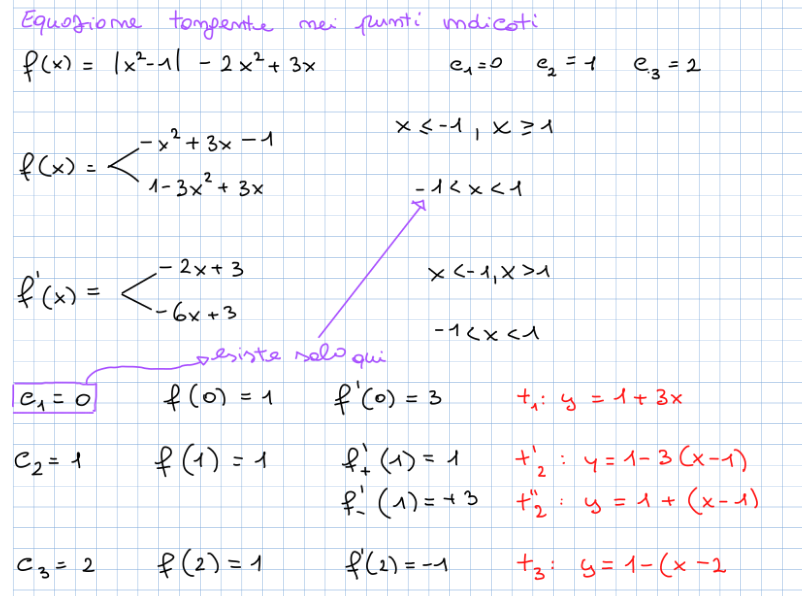 Equazione tangente nei punti indicati
f(x) = |x²-1| - 2x² + 3x c₁=0 c₂=1 c₃=2
-x² + 3x - 1 x ≤ -1, x ≥ 1
f(x) =
1-3x² + 3x -1 < x < 1
-2x + 3 x < -1, x > 1
f'(x) =
-6x + 3 -1 < x < 1
esiste solo qui
c₁ = 0 f(0) = 1 f'(0) = 3 t₁: y = 1 + 3x
c₂ = 1 f(1) = 1 f'₊(1) = 1 t'₂: y = 1-3(x-1)
f'₋(1) = +3 t"₂: y = 1 + (x-1)
c₃ = 2 f(2) = 1 f'(2) = -1 t₃: y = 1-(x-2